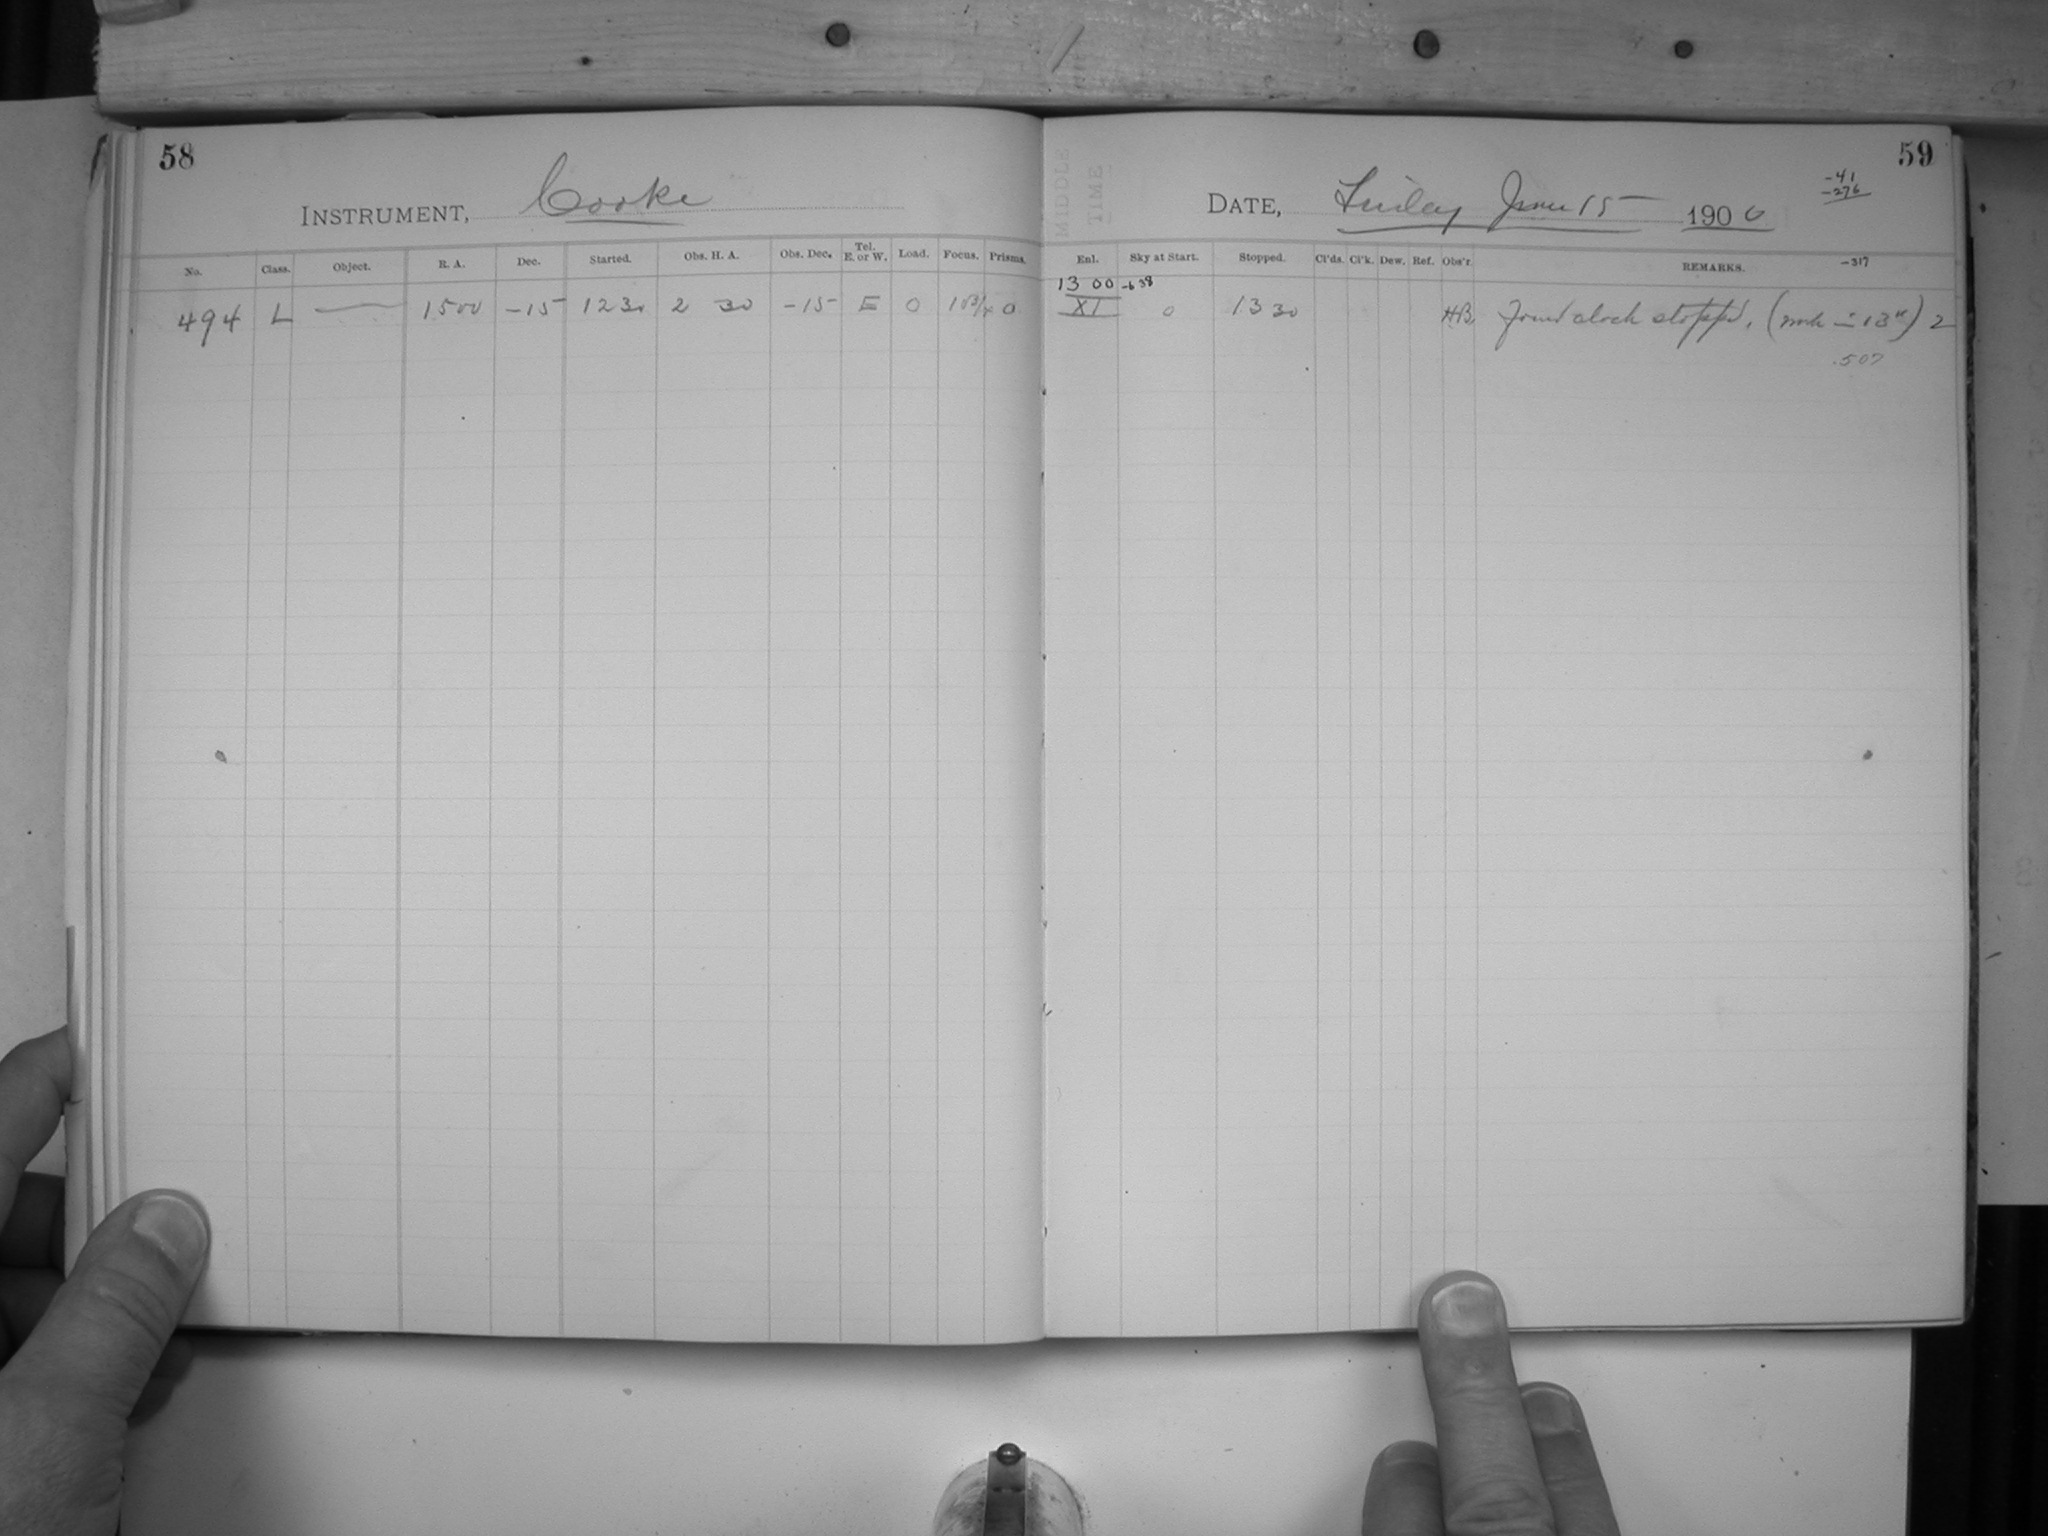 58
INSTRUMENT, Cooke
No. Class. Object. R. A. Dec. Started. Obs. H. A. Obs. Dec. Tel. E. or W. Load. Focus. Prisms.
494 L — 1500 -15 1230 2 30 -15 E 0 10 3/4 0
MIDDLE TIME
59
DATE, Friday June 15 1900
-41
-276
-317
Enl. Sky at Start. Stopped. Cl'ds. Cl'k. Dew. Ref. Obs'r. REMARKS.
13 00 -638
XI 0 13 30 HB Found clock stopped. 2
.507